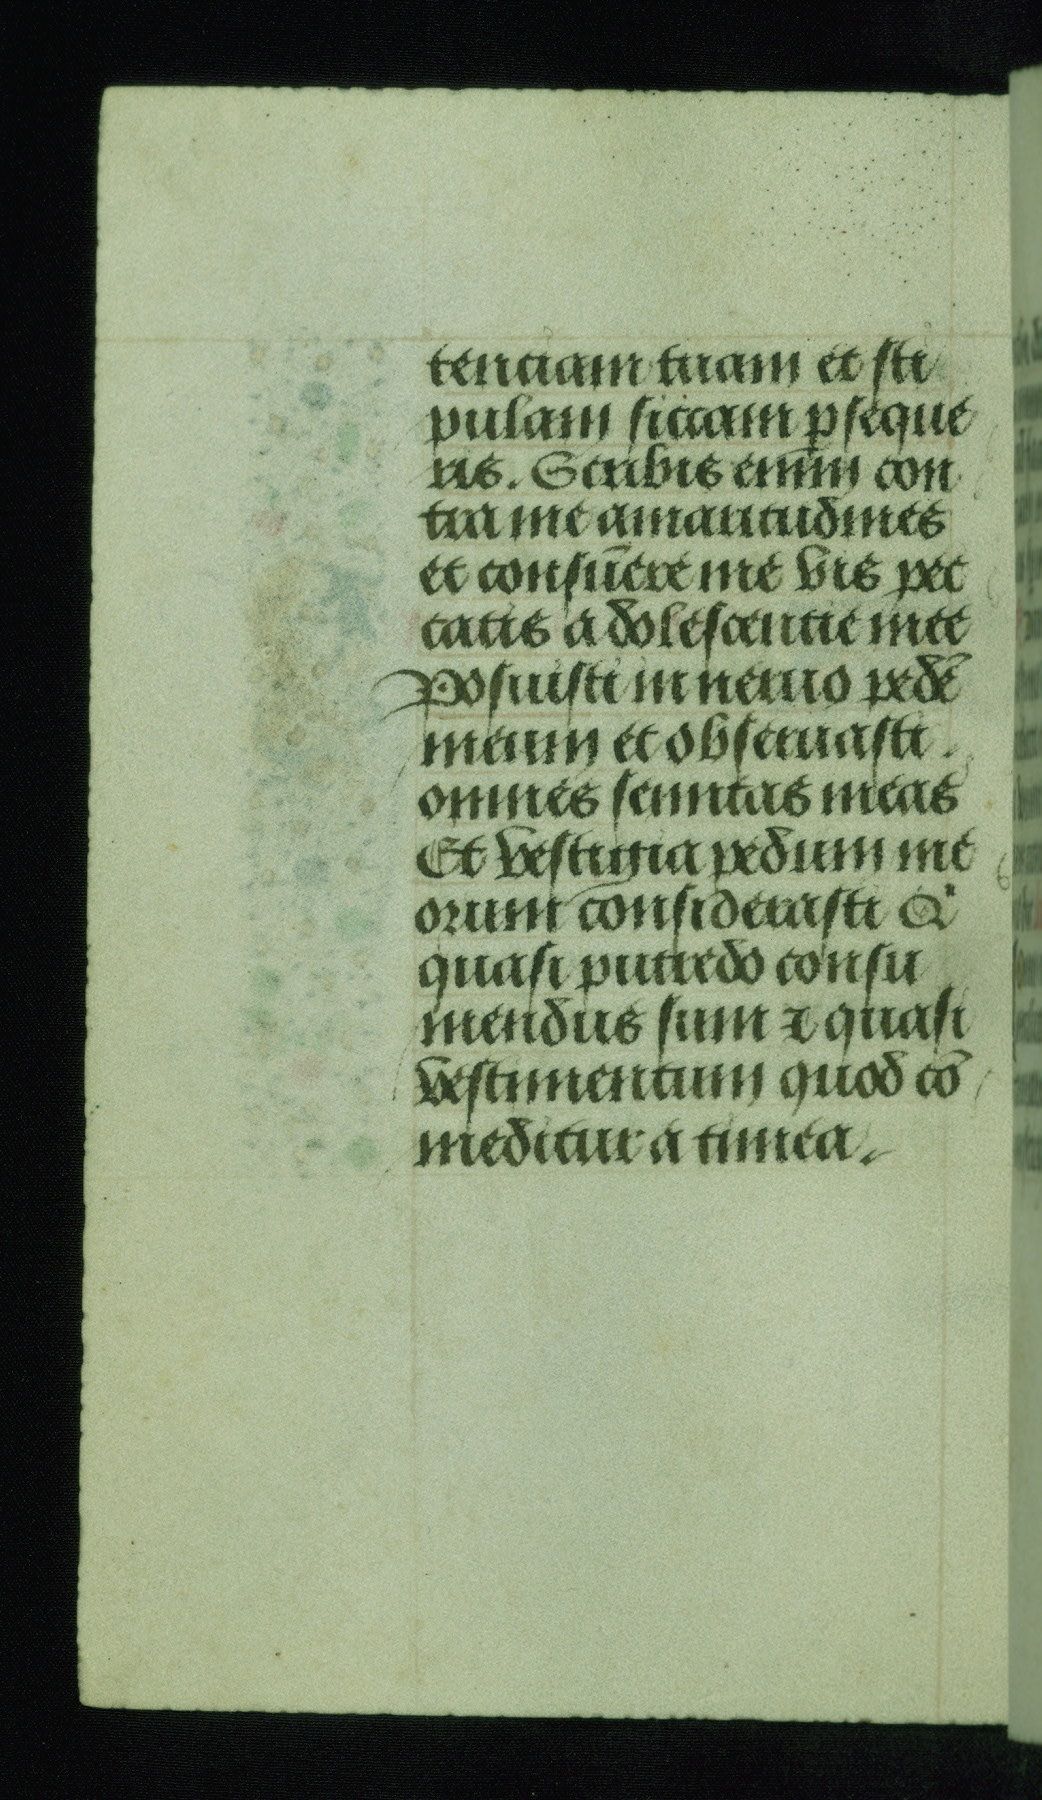 tenciam tuam et sti
pulam siccam ꝑseque
ris. Scribis enim̄ con
tra me amaritudines
et consūere me vis pec
catis adolescentie mee
Posuisti in neruo pedē
meum et obseruasti
omnes semitas meas
Et vestigia pedum me
orum considerasti Qͥ
quasi putredo consu
mendus sum ⁊ quasi
vestimentum quod cō
meditur a tinea.